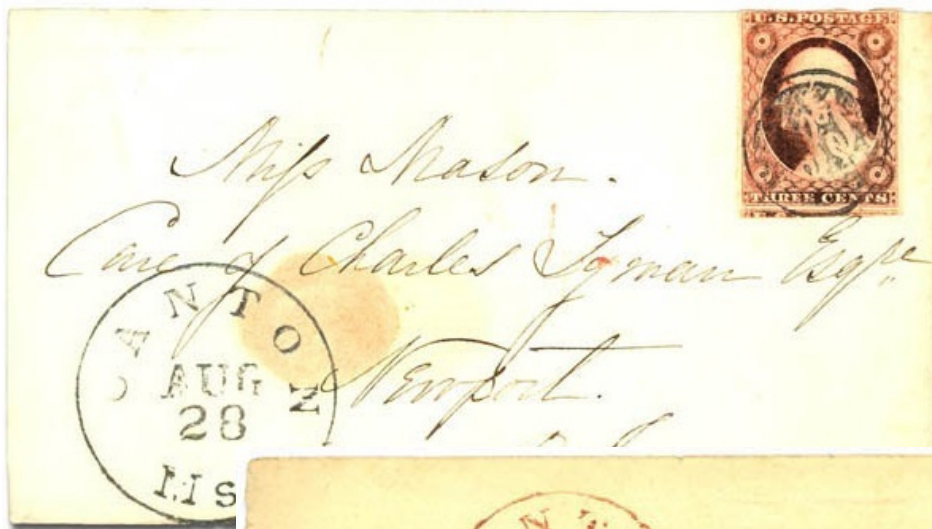 U.S. POSTAGE
THREE CENTS
Miss Mason.
Care of Charles Lyman Esqre
Newport.
CANTON
AUG
28
MS